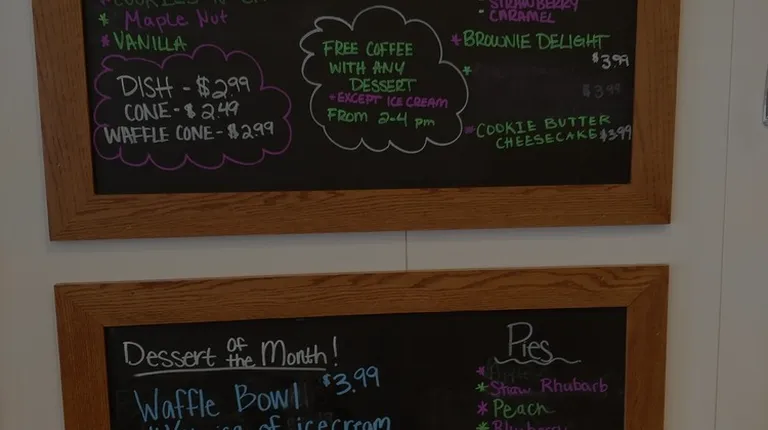 Maple Nut
VANILLA
DISH - $2.99
CONE - $2.49
WAFFLE CONE - $2.99
FREE COFFEE
WITH ANY
DESSERT
*EXCEPT ICE CREAM
FROM 2-4 pm
STRAWBERRY
CARAMEL
BROWNIE DELIGHT
$3.99
$3.99
COOKIE BUTTER
CHEESECAKE $3.99
Dessert of the Month!
Waffle Bowl $3.99
of icecream
Pies
Straw Rhubarb
Peach
Blueberry